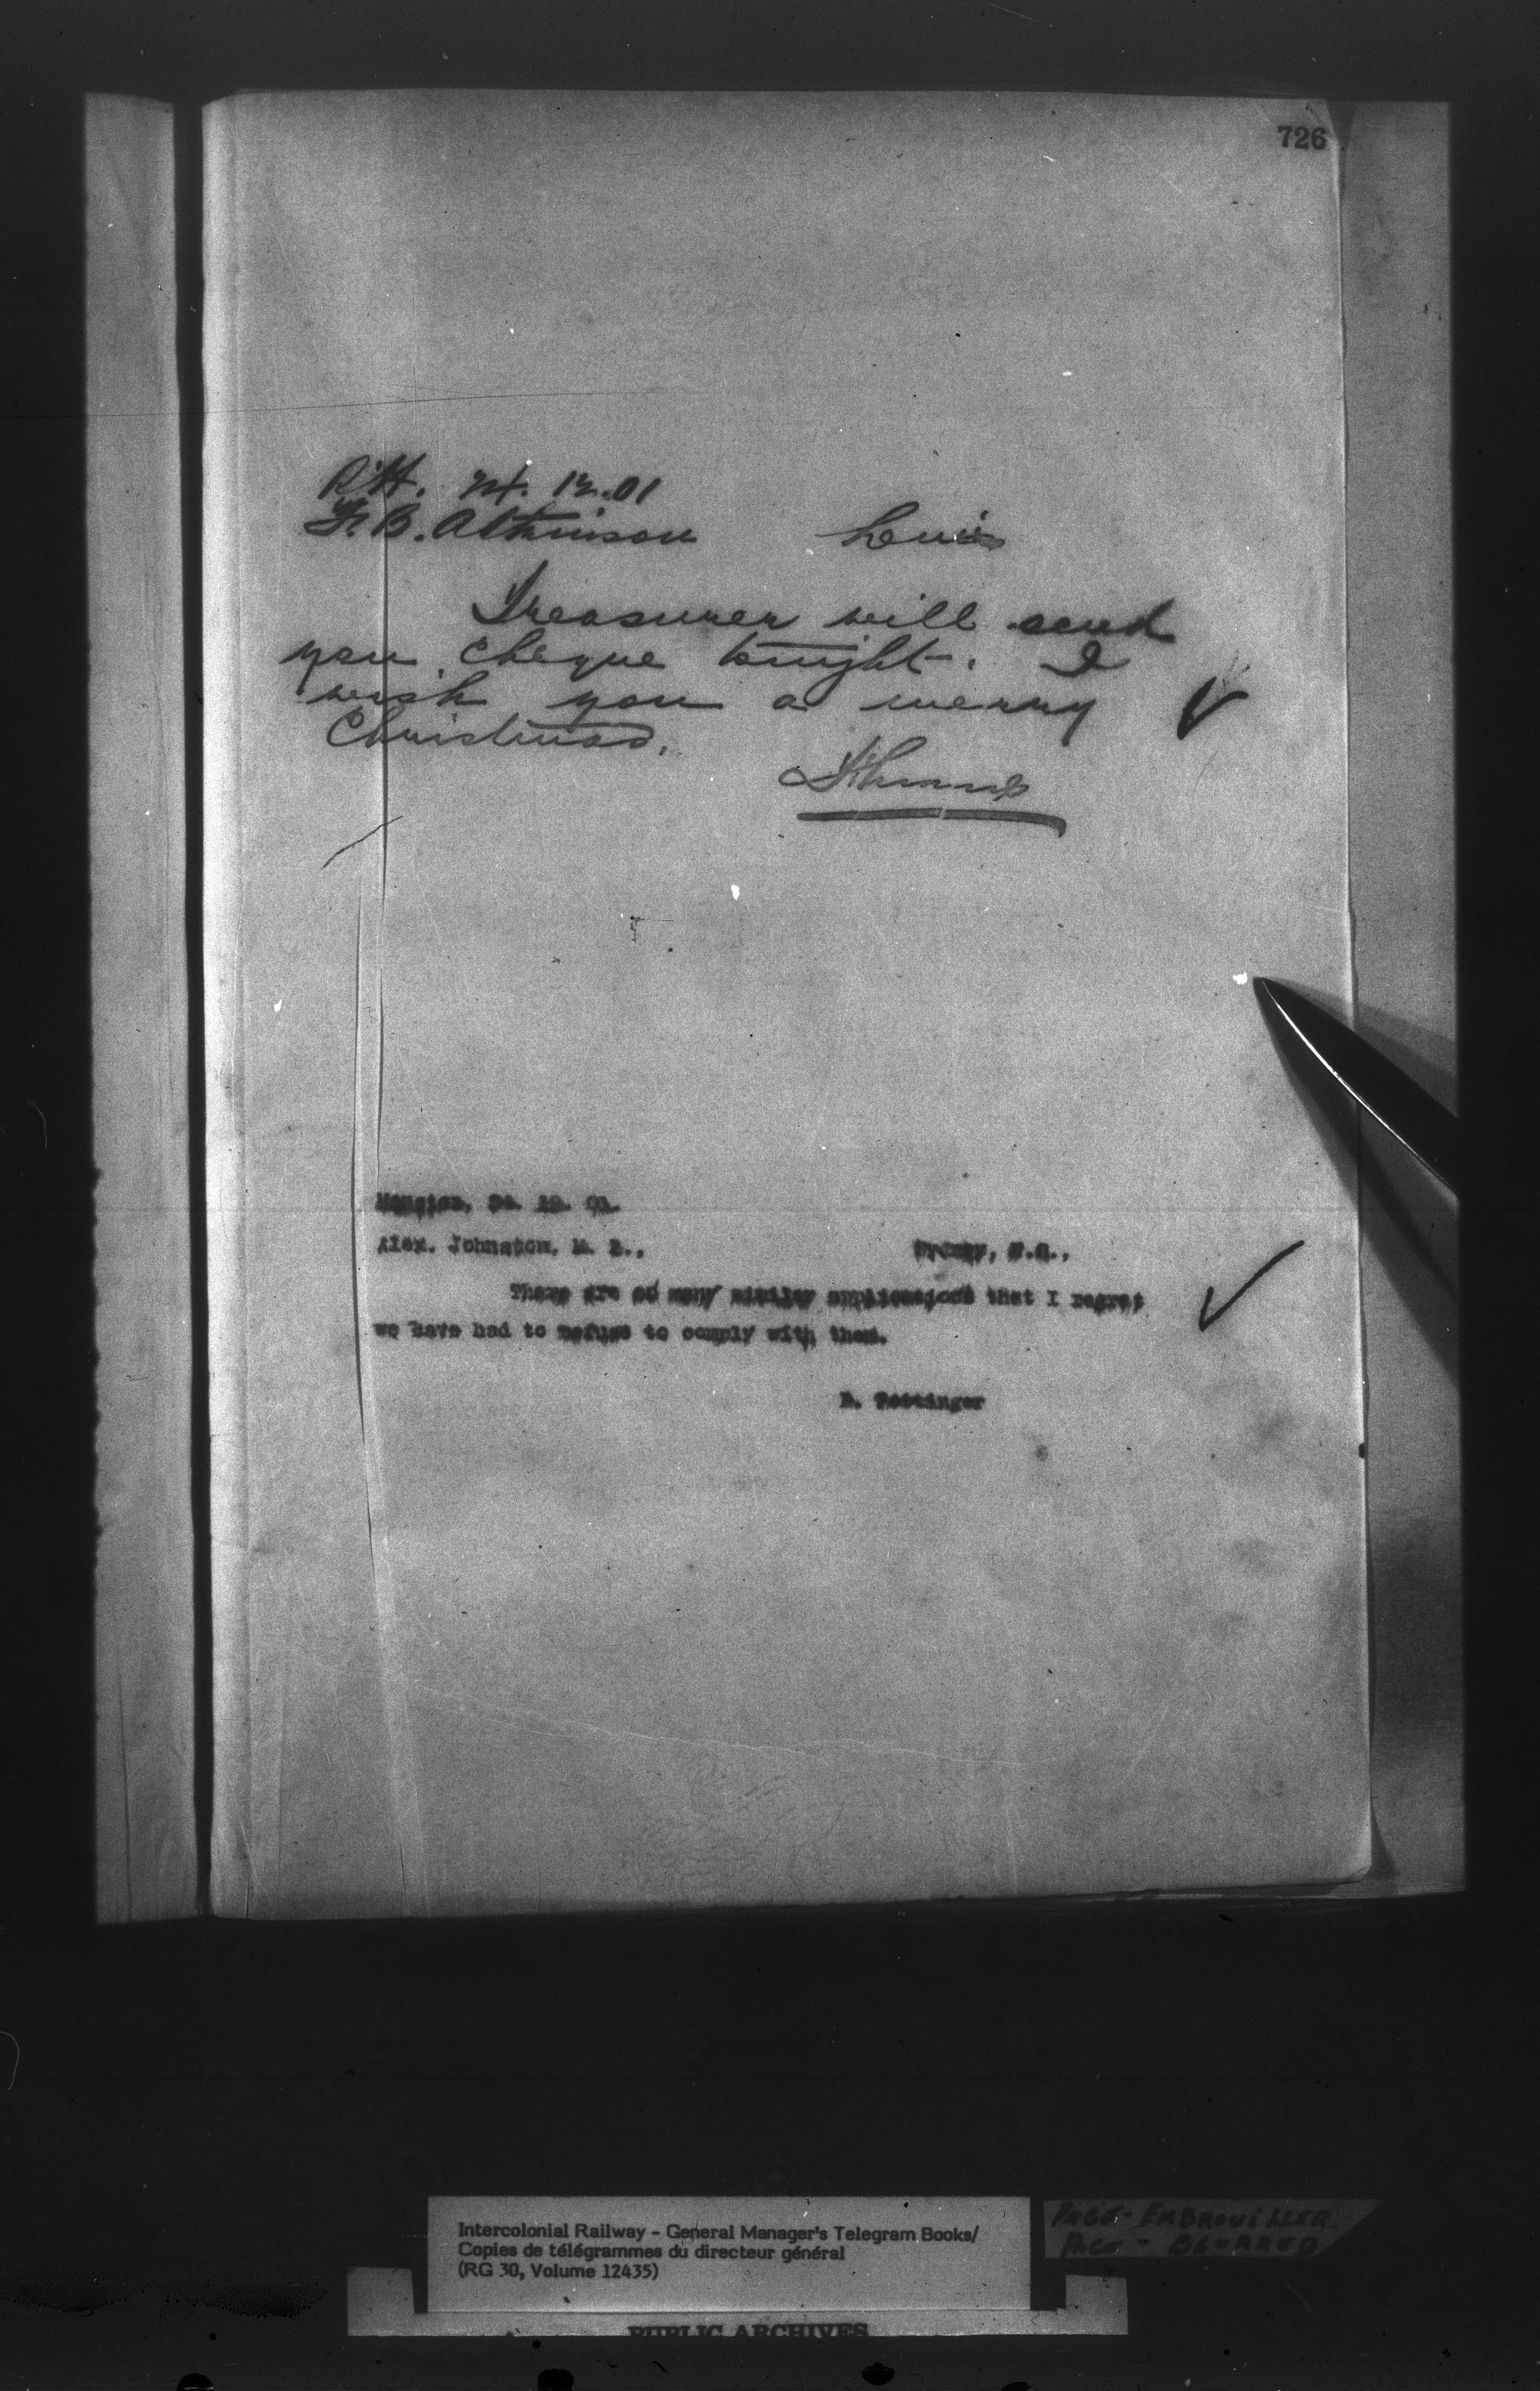 726
24. 12. 01
Levis
Treasurer will send
you cheque tonight. I
wish you a merry
Christmas.
Moncton, 24. 12. 01.
Alex. Johnston, M. P.,
Sydney, N.S.,
There are so many similar applications that I regret
we have had to refuse to comply with them.
D. Pottinger
Intercolonial Railway - General Manager's Telegram Books/
Copies de télégrammes du directeur général
(RG 30, Volume 12435)
PAGE - EMBROUILLER
PAGE - BLURRED
PUBLIC ARCHIVES